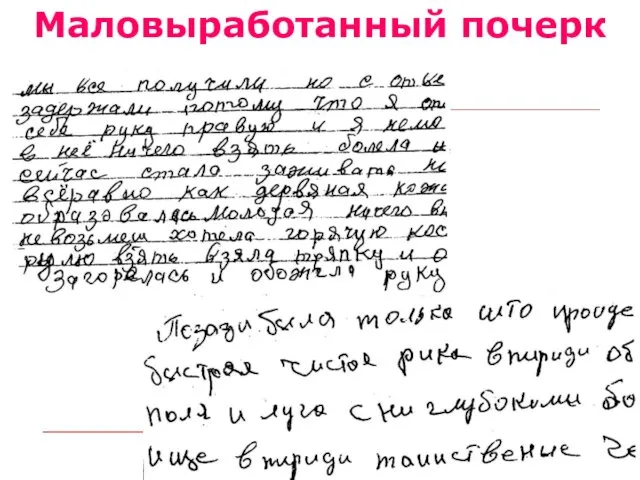 Маловыработанный почерк
мы все получили но с отве
задержали потому что я оп
себе руку правую и я немо
в неё ничего взять болела и
сейчас стало заживать но
всёравно как дервяная кожа
образовалась молодая ничего вы
не возьмеш хотела горячую кас
рюлю взять взяла тряпку и о
Загорелась и обожгла руку
Позади была только што пройде
быстрая чистая рика впириди об
поля и луга с ни глубокими бо
ище впириди таинственые че